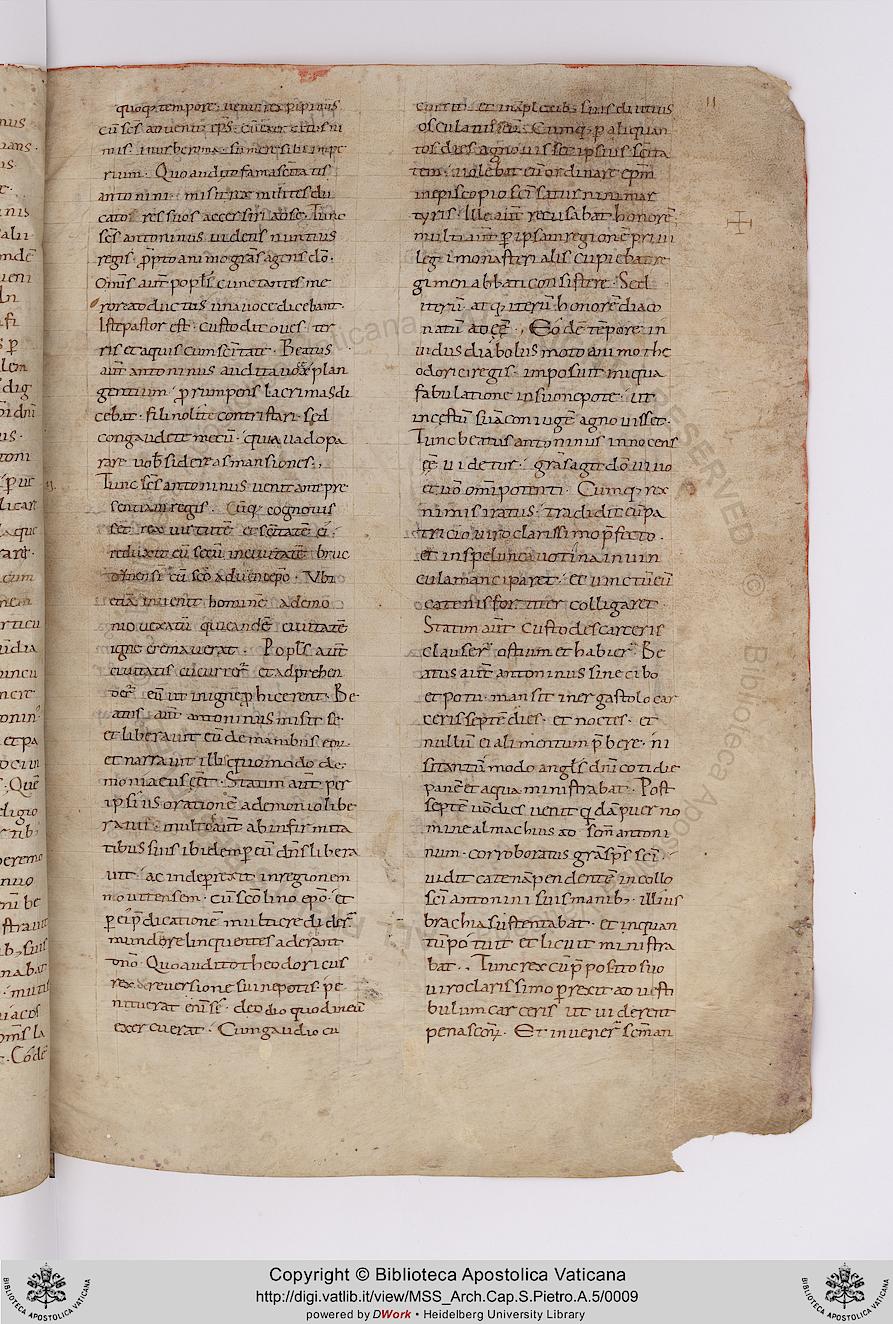 quoq; tempore· uenit rex pipinus
cū scs aduentu eps̄· cū exercitu suo
rium· Quo audito famā sc̄itatis
antonini· misit rex milites du
catores suos accersiri ad se· Tunc
sc̄s antoninus uidens nuntius
regis· p̄pto animo grās agens dō·
Om̄is aūt popl̄s cunctantes me
rore adductus una uoce dicebant·
Iste pastor est· custodit oues· ter
ris et aquis cum sc̄itate· Beatus
aūt antoninus audita uoce plan
gentium· prumpens lacrimas di
cebat· filii nolite contristari· sed
congaudete mecū· quia uado pa
rare uob̄ sidereas mansiones·,
Tunc sc̄s antoninus uenit ante pre
sentiam regis· Cūq; cognouis
set rex uirtutē et sc̄itatē ei·
reduxit eū secū in ciuitatē
etiā inuenit hominē a demo
nio uexatū qui eandē ciuitatē
igne cremauerat· Popl̄s aūt
ciuitatis cucurrer̄ et adprehen
der̄ eū ut in ignē phicerent· Be
atus aūt antoninus misit se·
et liberauit eū de manibus eoꝝ·
et narrauit illis quomodo de
moniacus eēt· Statim aūt per
ipsius orationē a demonio libe
ratus· multi aūt ab infirmita
tibus suis ibidem p eū dn̄s libera
uit· ac inde prexit in regionem
cum sc̄o lino ep̄o· et
p ei p̄dicationē multi credider̄
mundo relinquentes aderant
dn̄o· Quo audito theodoricus
rex de reuersione sui nepotis· pe
nituerat
exercuerat· Cum gaudio cu
currit· et in aplexib; suis diutius
osculatus eū· Cumq; p aliquan
tos dies agnouisset ipsius sc̄ita
tem· uolebat eū ordinare ep̄m
in episcopio sc̄i saturnini mar
tyris· Ille aūt recusabat honorē
multi aūt p ipsam regionē priui
legii monasterialis cupiebat re
gimen abbati consistere· Sed
iterū· atq; iterū honorē diaco
natū adeē·, Eodē tēpore in
uidus diabolus moto animo the
odorici regis· imposuit iniqua
fabulatione in suo nepote· ut
incestū suā coniuge agnouisset·
Tunc beatus antoninus innocens
eē uidetur· grās agit dō uiuo
et uō omīpotenti· Cumq; rex
nimis iratus· tradidit eū pa
tricio uiro clarissimo p̄fecto·
et in spelunca uotina in uin
cula manciparet· et uinctū eū
catenis fortiter colligaret·
Statim aūt custodes carceris
clauser̄ ostium et habier̄· Be
atus aūt antoninus sine cibo
et potu· mansit in ergastolo car
ceris septē dies· et noctes· et
nullū ei alimentum p̄bere· ni
si tantū modo angl̄s dn̄i cotidie
panē et aqua ministrabat· Post
septē uō dies uenit qdā puer no
mine almachius ad sc̄m antoni
num· corroboratus grā sps̄ sc̄i·
uidit catenā pendentē in collo
sc̄i antonini suis manib; illius
brachia sustentabat· et inquan
tū potuit et licuit ministra
bat·, Tunc rex cū p̄posito suo
uiro clarissimo prexit ad uesti
bulum carceris ut uiderent
pena sc̄oꝝ· Et inuener̄ sc̄m an
Copyright © Biblioteca Apostolica Vaticana
http://digi.vatlib.it/view/MSS_Arch.Cap.S.Pietro.A.5/0009
powered by DWork • Heidelberg University Library